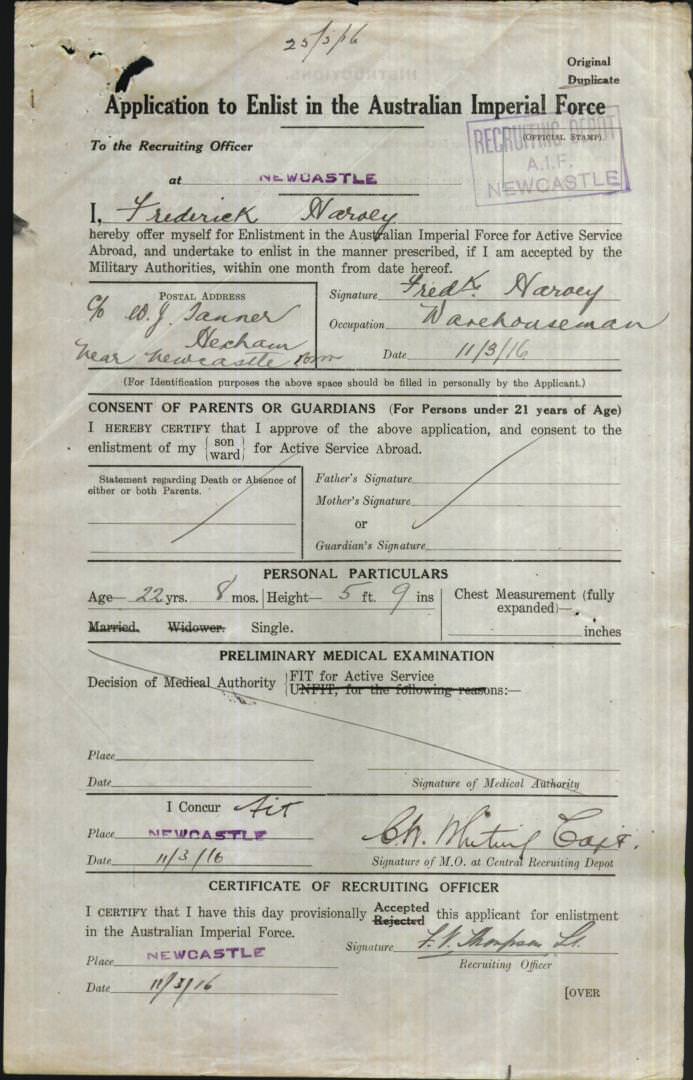 25/3/16
Original
Duplicate
Application to Enlist in the Australian Imperial Force
(OFFICIAL STAMP)
RECRUITING DEPOT
A.I.F.
NEWCASTLE
To the Recruiting Officer
at NEWCASTLE
I, Frederick Harvey
hereby offer myself for Enlistment in the Australian Imperial Force for Active Service
Abroad, and undertake to enlist in the manner prescribed, if I am accepted by the
Military Authorities, within one month from date hereof.
POSTAL ADDRESS
c/o W. J. Tanner
Hexham
near Newcastle
Signature Fredk. Harvey
Occupation Warehouseman
Date 11/3/16
(For Identification purposes the above space should be filled in personally by the Applicant.)
CONSENT OF PARENTS OR GUARDIANS (For Persons under 21 years of Age)
I HEREBY CERTIFY that I approve of the above application, and consent to the
enlistment of my {son ward} for Active Service Abroad.
Statement regarding Death or Absence of
either or both Parents.
Father's Signature
Mother's Signature
or
Guardian's Signature
PERSONAL PARTICULARS
Age— 22 yrs. 8 mos. Height— 5 ft. 9 ins
Chest Measurement (fully
expanded)—
inches
Married. Widower. Single.
PRELIMINARY MEDICAL EXAMINATION
Decision of Medical Authority {FIT for Active Service
UNFIT, for the following reasons:—
Place
Date
Signature of Medical Authority
I Concur Fit
Place NEWCASTLE
Date 11/3/16
C.W. Whiting Capt.
Signature of M.O. at Central Recruiting Depot
CERTIFICATE OF RECRUITING OFFICER
I CERTIFY that I have this day provisionally Accepted Rejected this applicant for enlistment
in the Australian Imperial Force.
Signature F. V. Thompson Lt.
Recruiting Officer
Place NEWCASTLE
Date 11/3/16
[OVER